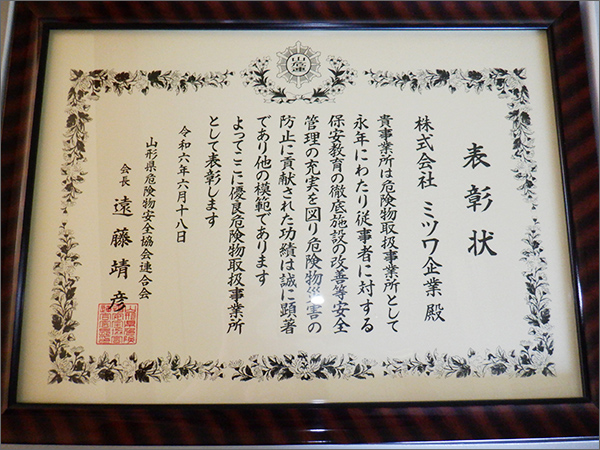 表彰状
株式会社 ミツワ企業 殿
貴事業所は危険物取扱事業所として
永年にわたり従事者に対する
保安教育の徹底施設の改善等安全
管理の充実を図り危険物災害の
防止に貢献された功績は誠に顕著
であり他の模範であります
よってここに優良危険物取扱事業所
として表彰します
令和六年六月十八日
山形県危険物安全協会連合会
会長 遠藤靖彦